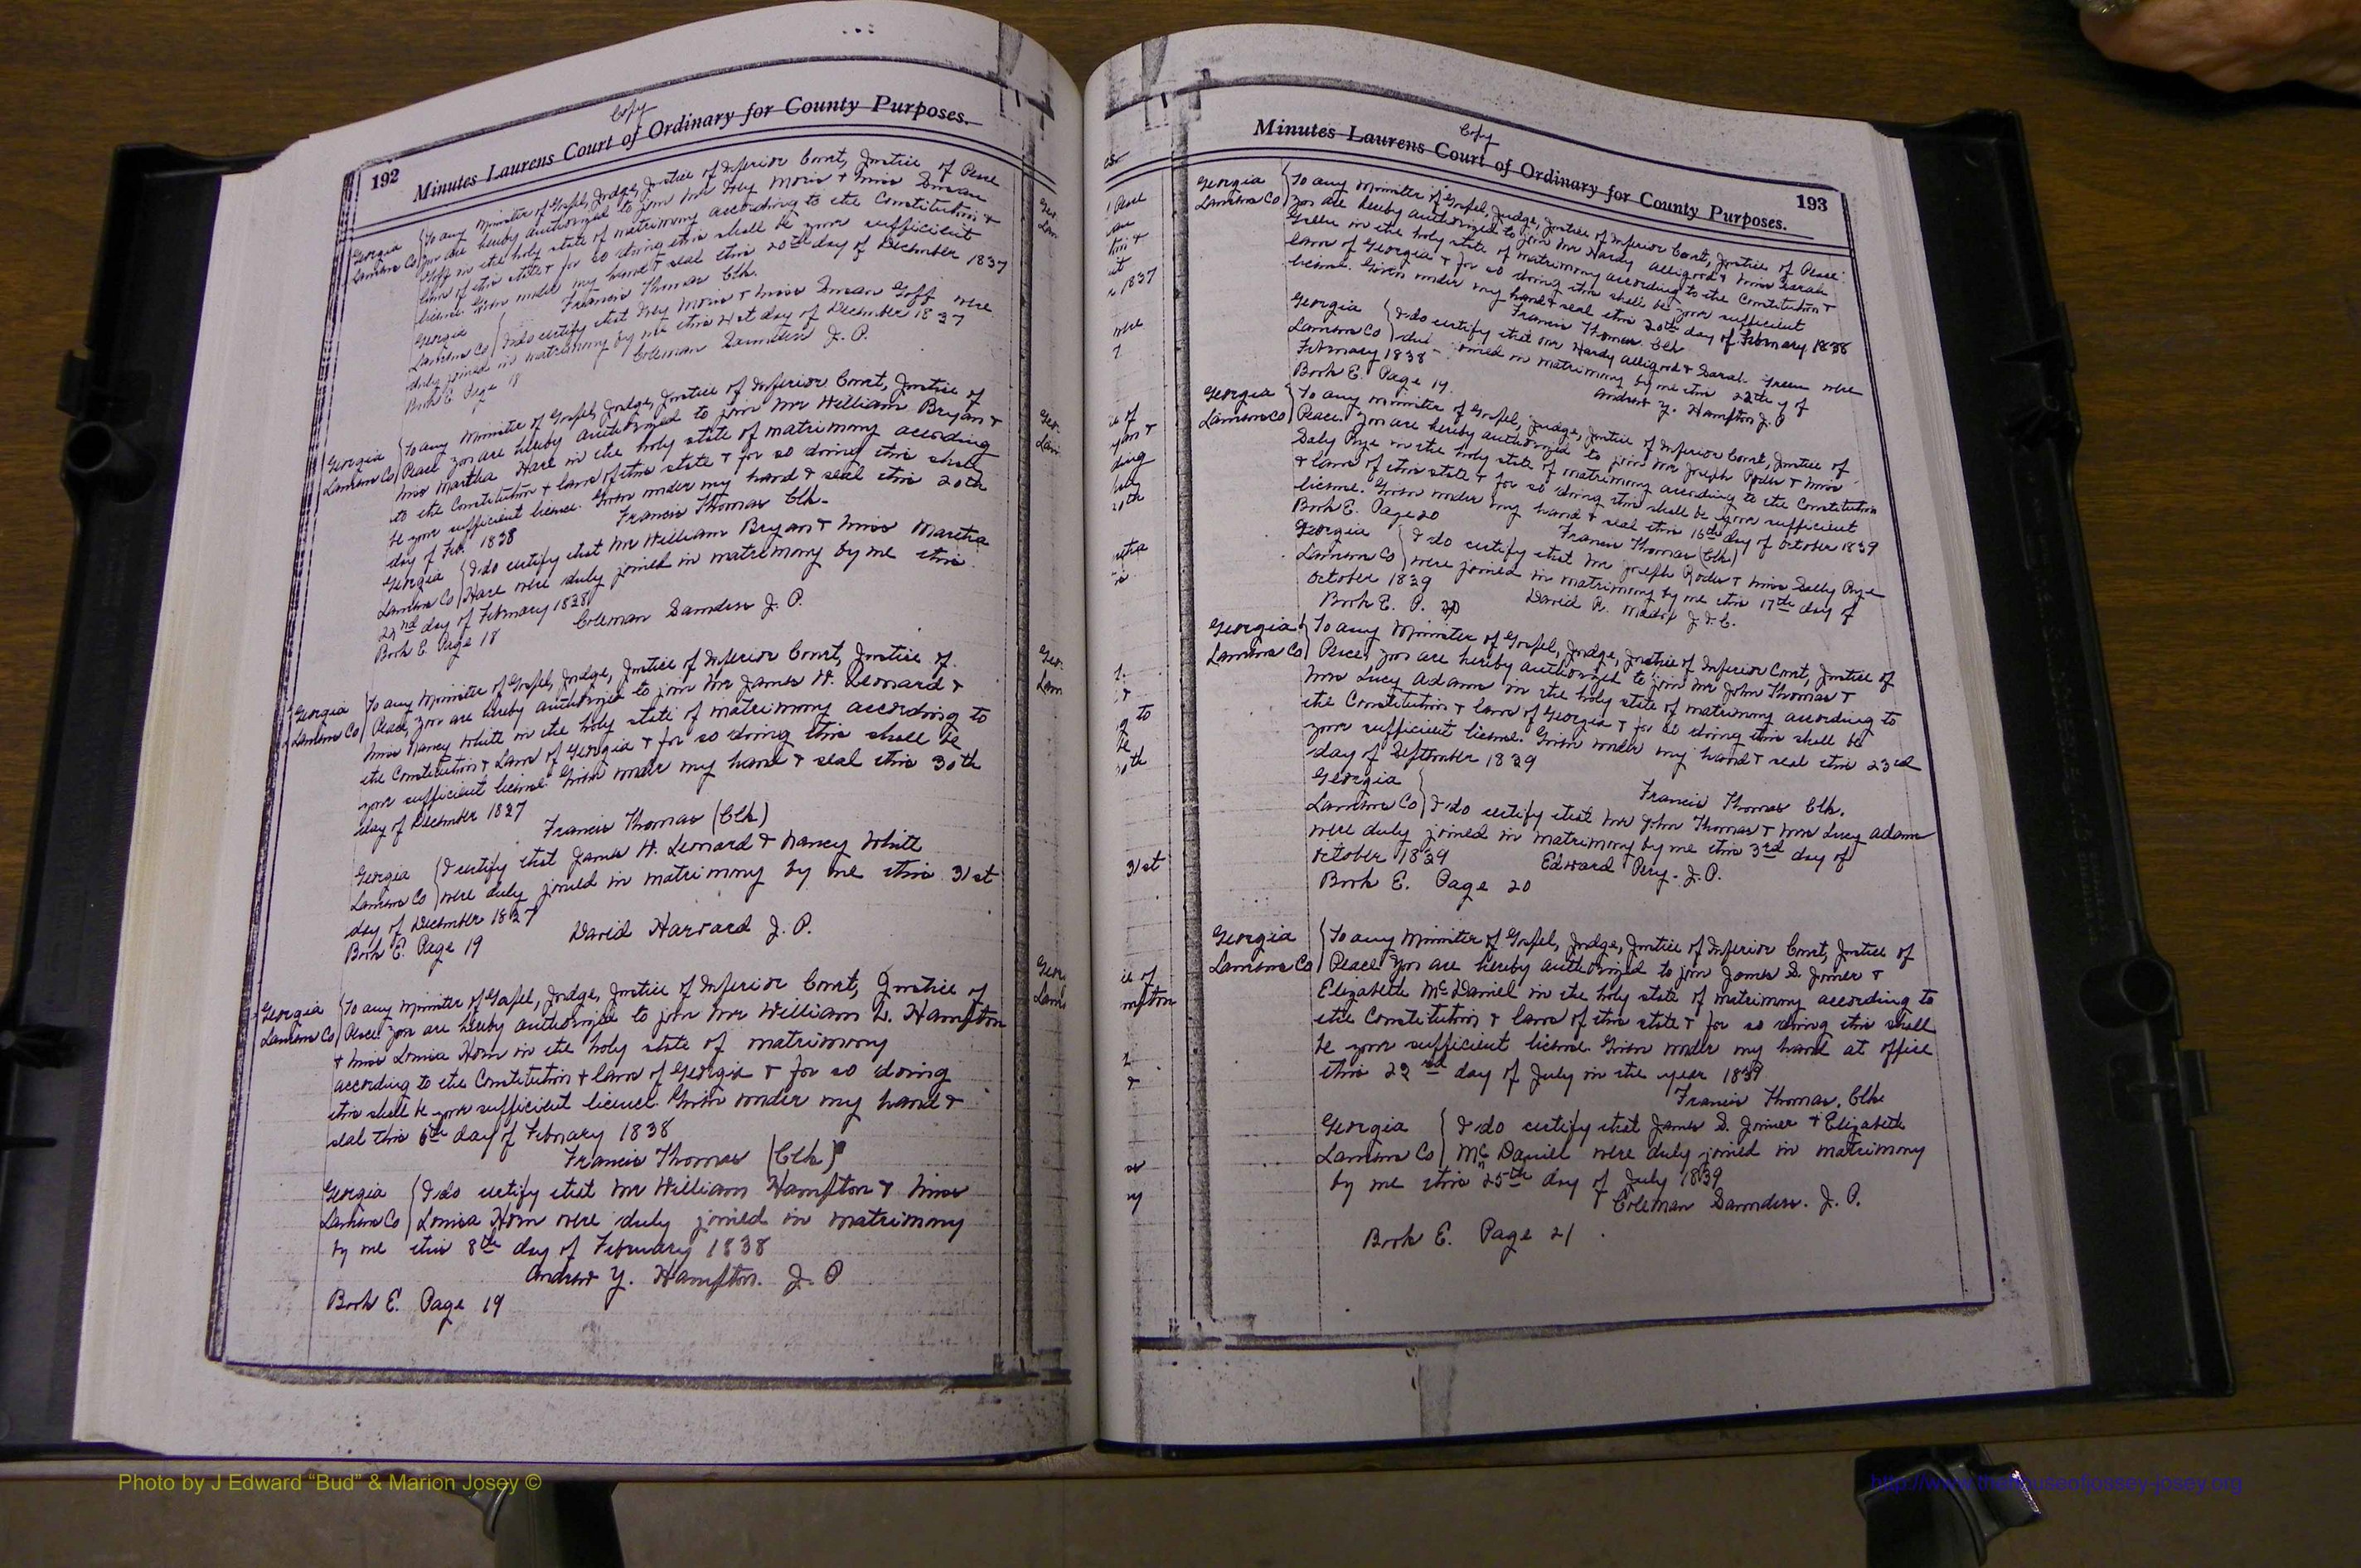 Copy
192 Minutes Laurens Court of Ordinary for County Purposes.
Georgia
Laurens Co
To any Minister of Gospel, Judge, Justice of Inferior Court, Justice of Peace
you are hereby authorized to join Mr Moris & Miss Susan
Goff in the holy state of matrimony according to the Constitution &
laws of this state & for so doing this shall be your sufficient
license. Given under my hand & seal this 20th day of December 1837
Francis Thomas Clk.
Georgia
Laurens Co
I do certify that Moris & Miss Susan Goff were
duly joined in matrimony by me this 21st day of December 1837
Coleman Saunders J. P.
Book E Page 18
Georgia
Laurens Co
To any Minister of Gospel, Judge, Justice of Inferior Court, Justice of
Peace you are hereby authorized to join Mr William Bryan &
Miss Martha Hare in the holy state of matrimony according
to the Constitution & laws of this state & for so doing this shall
be your sufficient license. Given under my hand & seal this 20th
day of Feb. 1838
Francis Thomas Clk.
Georgia
Laurens Co
I do certify that Mr William Bryan & Miss Martha
Hare were duly joined in matrimony by me this
22nd day of February 1838
Coleman Saunders J. P.
Book E. Page 18
Georgia
Laurens Co
To any Minister of Gospel, Judge, Justice of Inferior Court, Justice of
Peace, you are hereby authorized to join Mr James W. Leonard &
Miss Nancy White in the holy state of matrimony according to
the Constitution & Laws of Georgia & for so doing this shall be
your sufficient license. Given under my hand & seal this 30th
day of December 1837
Francis Thomas (Clk)
Georgia
Laurens Co
I certify that James W. Leonard & Nancy White
were duly joined in matrimony by me this 31st
day of December 1837
David Harvard J. P.
Book E. Page 19
Georgia
Laurens Co
To any Minister of Gospel, Judge, Justice of Inferior Court, Justice of
Peace. you are hereby authorized to join Mr William L. Hampton
& Miss Louisa Horn in the holy state of matrimony
according to the Constitution & laws of Georgia & for so doing
this shall be your sufficient licence. Given under my hand &
seal this 6th day of February 1838
Francis Thomas (Clk)
Georgia
Laurens Co
I do certify that Mr William Hampton & Miss
Louisa Horn were duly joined in matrimony
by me this 8th day of February 1838
Andrew Y. Hampton. J. P
Book E. Page 19
Copy
Minutes Laurens Court of Ordinary for County Purposes. 193
Georgia
Laurens Co
To any Minister of Gospel, Judge, Justice of Inferior Court, Justice of Peace.
you are hereby authorized to join Mr Hardy Alligood & Miss Sarah
Green in the holy state of matrimony according to the Constitution &
laws of Georgia & for so doing this shall be your sufficient
license. Given under my hand & seal this 20th day of February 1838
Francis Thomas Clk
Georgia
Laurens Co
I do certify that Mr Hardy Alligood & Sarah Green were
joined in matrimony by me this 22th of
February 1838
Andrew Y. Hampton J. P
Book E. Page 19.
Georgia
Laurens Co
To any Minister of Gospel, Judge, Justice of Inferior Court, Justice of
Peace. you are hereby authorized to join Mr Joseph & Miss
Sally Pope in the holy state of matrimony according to the Constitution
& laws of this state & for so doing this shall be your sufficient
license. Given under my hand & seal this 16th day of October 1839
Francis Thomas (Clk)
Book E. Page 20
Georgia
Laurens Co
I do certify that Mr Joseph & Miss Sally
were joined in matrimony by me this 17th day of
October 1839
David R.
Book E. P. 20
Georgia
Laurens Co
To any Minister of Gospel, Judge, Justice of Inferior Court, Justice of
Peace, you are hereby authorized to join Mr John Thomas &
Mrs Lucy Adams in the holy state of matrimony according to
the Constitution & laws of Georgia & for so doing this shall be
your sufficient license. Given under my hand & seal this 23rd
day of September 1839
Francis Thomas Clk.
Georgia
Laurens Co
I do certify that Mr John Thomas & Mrs Lucy Adams
were duly joined in matrimony by me this 3rd day of
October 1839
Edward Pery. J. P.
Book E. Page 20
Georgia
Laurens Co
To any Minister of Gospel, Judge, Justice of Inferior Court, Justice of
Peace. you are hereby authorized to join James S. Joiner &
Elizabeth McDaniel in the holy state of matrimony according to
the Constitution & laws of this state & for so doing this shall
be your sufficient license. Given under my hand at office
this 23rd day of July in the year 1839
Francis Thomas. Clk
Georgia
Laurens Co
I do certify that James S. Joiner & Elizabeth
McDaniel were duly joined in matrimony
by me this 25th day of July 1839
Coleman Saunders. J. P.
Book E. Page 21
Photo by J Edward “Bud” & Marion Josey ©
http://www.thehouseofjossey-josey.org